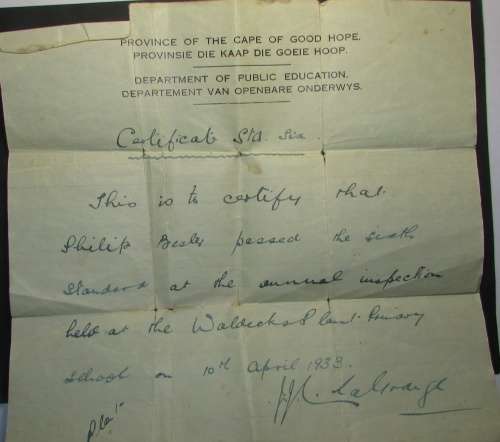 PROVINCE OF THE CAPE OF GOOD HOPE.
PROVINSIE DIE KAAP DIE GOEIE HOOP.
DEPARTMENT OF PUBLIC EDUCATION.
DEPARTEMENT VAN OPENBARE ONDERWYS.
Certificate Std. Six.
This is to certify that
Philip passed the sixth
standard at the annual inspection
held at the Waldecks Plant Primary
School on 10th April 1933.